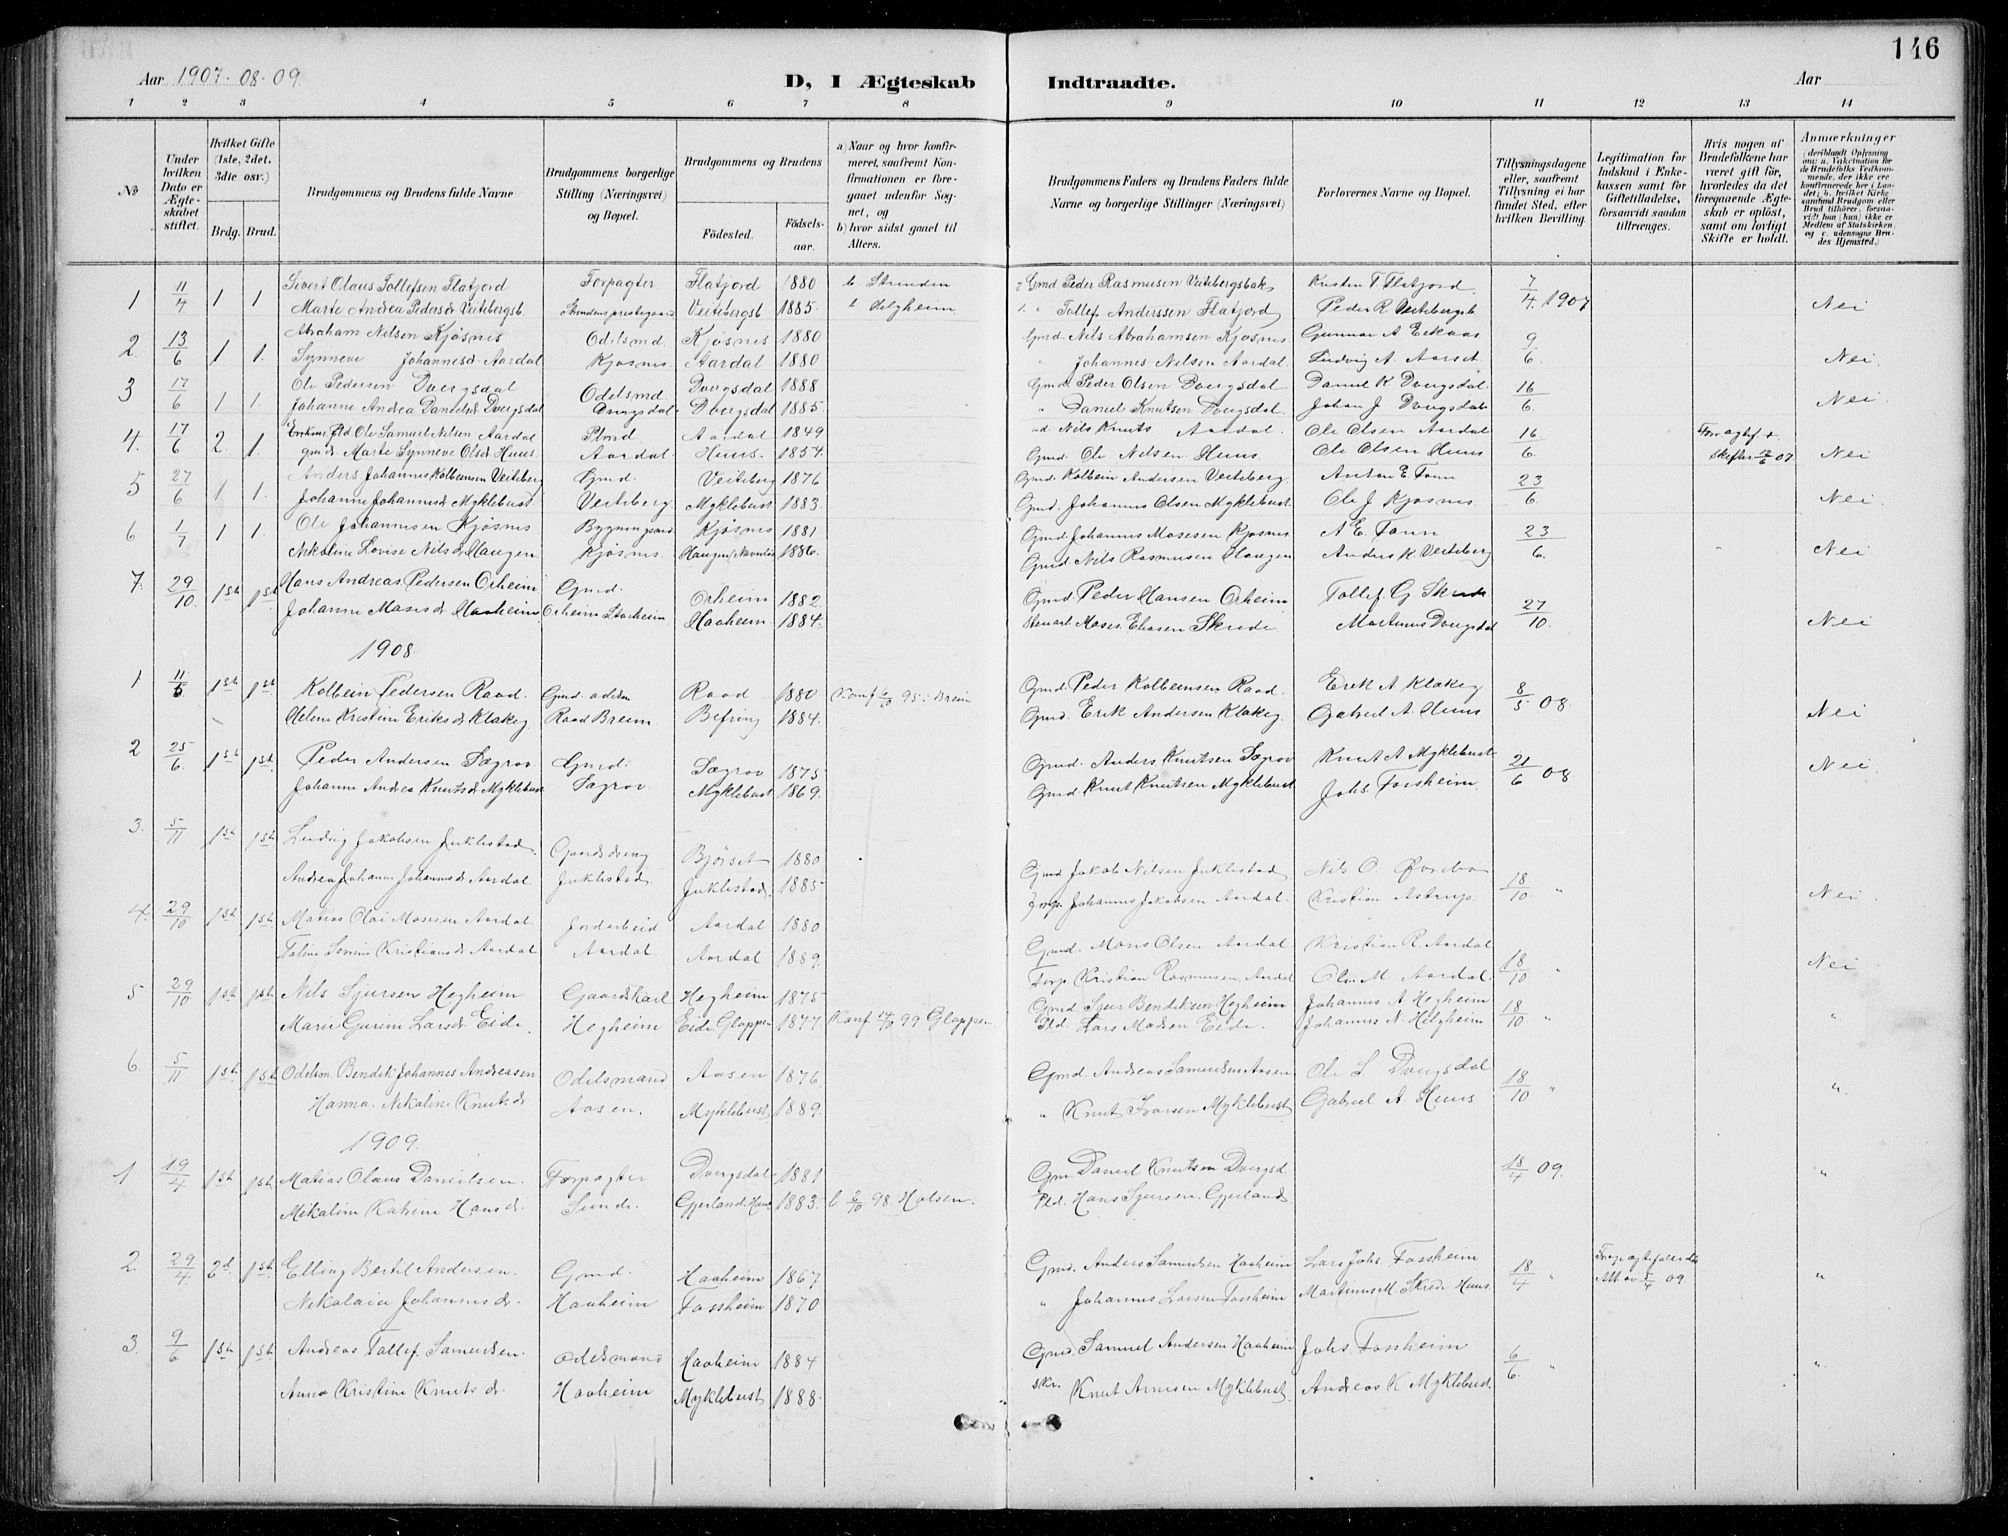 146
Aar 1907-08-09.
D, I Ægteskab Indtraadte.
Aar
1 2 3 4 5 6 7 8 9 10 11 12 13 14
No
Under hvilken Dato er Ægteskabet stiftet.
Hvilket Gifte (1ste, 2det, 3die osv.)
Brdg. Brud.
Brudgommens og Brudens fulde Navne
Brudgommens borgerlige Stilling (Næringsvei) og Bopæl.
Brudgommens og Brudens
Födested. Födselsaar.
a) Naar og hvor konfirmeret, saafremt Konfirmationen er foregaaet udenfor Sognet, og
b) hvor sidst gaaet til Alters.
Brudgommens Faders og Brudens Faders fulde Navne og borgerlige Stillinger (Næringsvei)
Forlovernes Navne og Bopæl.
Tillysningsdagene eller, saafremt Tillysning ei har fundet Sted, efter hvilken Bevilling.
Legitimation for Indskud i Enkekassen samt för Giftetilladelse, forsaavidt saadan tiltrænges.
Hvis nogen af Brudefolkene har været gift för, hvorledes da det foregaaende Ægteskab er oplöst, samt om lovligt Skifte er holdt.
Anmærkninger
(deriblandt Oplysning om: a. Vakcination for de Brudefolks Vedkommende, der ikke ere konfirmerede her i Landet; b. hvilket Kirkesamfund Brudgom eller Brud tilhörer, forsaavidt han (hun) ikke er Medlem af Statskirken, og c. udensogns Brudes Hjemsted.)
1 11/4 1 1 Sivert Olaus Tollefsen Flatjord Forpagter Flatjord 1880 b. Strunden Gmd Peder Rasmusen Veitebergsbak Kristen T Flatjord 7/4 1907
Marte Andrea Pedersd Veitebergsb Veitebergsb 1885. b Helgheim 1. " Tollef Anderssen Flatjord Peder R Veitebergsb Nei
2. 13/6 1 1. Abraham Nilsen Kjøsnes Odelsmd Kjøsnes 1880 Gmd. Nils Abrahamsen Kjøsnes Gunnar A Eikaas 9/6.
Synneve Johannesd. Aardal Kjøsnes Aardal 1880 " Johannes Nilsen Aardal Ludvig A. Aarset Nei.
3 17/6 1 1. Ole Pedersen Dvergsdal Odelsmd Dvergsdal 1888 Gmd. Peder Olsen Dvergsdal Daniel K Dvergsdal. 16/6.
Johanne Andrea Danielsd Dvergsdal Dvergsdal Dvergsdal 1885. " Daniel Knutsen Dvergsdal. Johan J. Dvergsdal Nei.
4. 17/6 2. 1. Enkem. Pld Ole Samuel Nilsen Aardal Plmd Aardal 1849 Nils Knuts Aardal. Ole Olsen Aardal 16./6.
Marte Synneve Olsd. Huus Aardal Huus. 1854. Gmd. Ole Nilsen Huus. Ole Olsen Huus Nei
5 27/6 1 1. Anders Johannes Kolbeinsen Veiteberg Gmd. Veiteberg 1876 Gmd Kolbein Andersen Veiteberg. Anton E Tonn 23/6.
Johanne Johannesd Myklebust. Veiteberg. Myklebust 1883. Gmd. Johannes Olsen Myklebust. Ole J Kjøsnes Nei.
6 1/7 1 1. Ole Johannesen Kjøsnes Bygningsmd Kjøsnes 1881 Gmd. Johannes Mosesen Kjøsnes A E Tonn 23/6.
Nikoline Lovise Nilsd. Haugen Kjøsnes. 1886. Gmd Nils Rasmusen Haugen Anders K. Veiteberg Nei
7. 29/10. 1st 1st Hans Andreas Pedersen Orheim Gmd. Orheim 1882. Gmd. Peder Hansen Orheim Tollef G Skrede 27/10.
Johanne Mosesd. Haaheim Orheim Starheim Haaheim. 1884. Moses Eliasen Skrede Martinus Dvergsdal Nei
1908.
1 11/5 1st 1st Kolbein Pedersen Raad. Gmd. Raad 1880 Konf 95. Breim Gmd. Peder Kolbeinsen Raad. Erik A Klakeg 8/5 08.
Helene Kristine Eriksd. Klakeg Raad Breim. Befring 1884. Gmd. Erik Andersen Klakeg. Gabriel A. Huus. Nei
2 25/6. 1st 1st. Peder Andersen Sægrov Gmd. Sægrov 1875 Gmd. Anders Knutsen Sægrov Knut A Myklebust 21/6 08
Johanne Andrea Knutsd. Myklebust Sægrov Myklebust 1869. Gmd Knut Knutsen Myklebust Johs. Fossheim. Nei
3. 5/11 1st 1st. Ludvig Jakobsen Juklestad. Gaardsdreng Bjørset 1880 Gmd Jakob Nilsen Juklestad Nils O. Øvrebø 18/10 "
Andrea Johanne Johannesd Aardal. Juklestad. Juklestad. 1885 Johannes Jakobsen Aardal. Kristian Astrup. Nei.
4. 29/10 1st 1st. Matias Olai Mosesen Aardal. Jordarbeid Aardal 1880 Gmd. Mons Olsen Aardal Kristian R. Aardal 18/10 "
Kristiansd Aardal Aardal. Aardal 1889. Forp Kristian Rasmusen Aardal Ole M Aardal. Nei
5. 29/10 1st 1st. Nils Sjursen Hegheim Gaardskarl Hegheim 1875 Gmd Sjur Bendiksen Hegheim Johannes A Hegheim 18/10 "
Marie Gurine Larsd. Eide. Hegheim Eide Gloppen 1877 Konf 99 Gloppen Pld. Lars Madsen Eide. Johannes N. Helgheim "
6. 5/11 1st. 1st. Odelsm. Bendik Johannes Andreasen Odelsmand Aasen 1876. Gmd. Andreas Samuelsen Aasen Ole S Dvergsdal 18/10 "
Hanna Nikoline Knutsd. Aasen. Myklebust 1889. " Knut Ivarsen Myklebust Gabriel A. Huus "
1909.
1 19/4 1st. 1st. Matias Olaus Danielsen. Forpagter Dvergsdal 1881 Gm. Daniel Knutsen Dvergsd 18/4 09.
Mikaline Katrine Hansd. Sunde. Gjerland. 1883. b 98. Holsen. Pld. Hans Sjursen. Gjerland "
2. 29/4 2d. 1st. Elling Bertil Andersen. Gmd. Haaheim 1867 Gmd. Anders Samuelsen Haaheim Lars Johs. Fossheim 18/4 "
Nikolaia Johannesd. Haaheim Fossheim 1870 " Johannes Larsen Fossheim Martinus M. Skrede Huus. "
3. 9/6 1st. 1st. Andreas Tollef. Samuelsen. Odelsmand Haaheim 1884 Gmd. Samuel Andersen Haaheim Johs Fossheim 6/6. "
Anna Kristine Knutsd. Haaheim Myklebust 1888. Knut Arnesen Myklebust Andreas K Myklebust. "